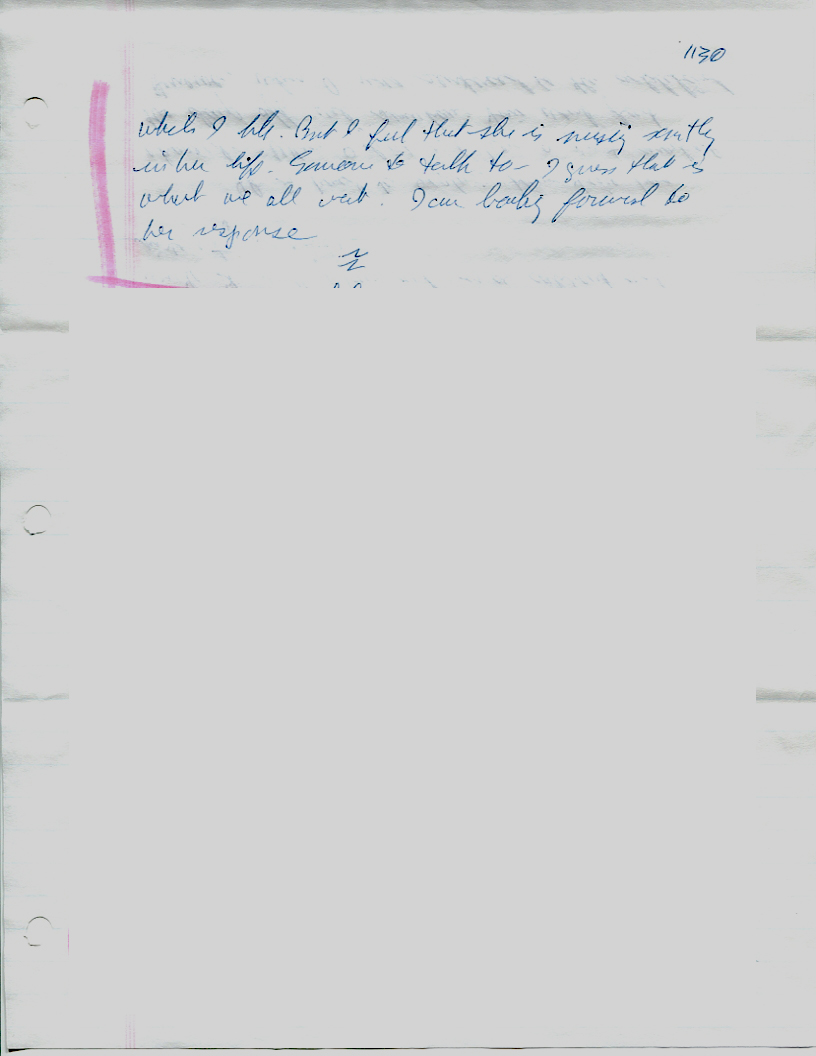 1130
which I like. But I feel that she is missing something
in her life. Someone to talk to - I guess that is
what we all want. I am looking forward to
her response